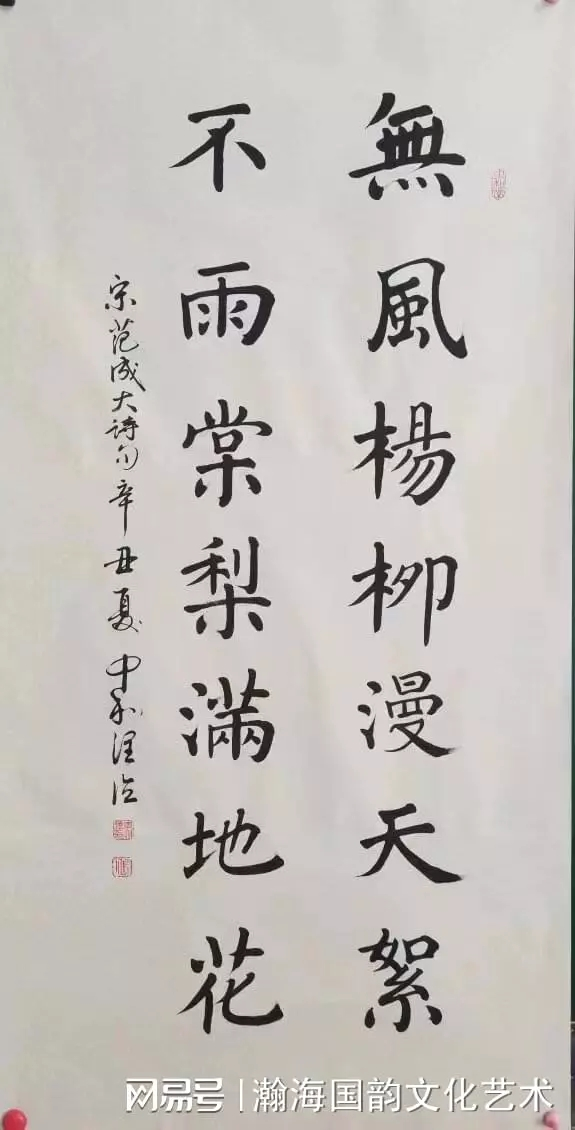 無風楊柳漫天絮
不雨棠梨滿地花
宋范成大詩句辛丑夏中和
网易号 瀚海国韵文化艺术